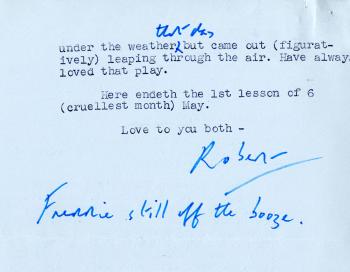 that day
under the weather but came out (figurat-
ively) leaping through the air. Have alway
loved that play.
Here endeth the 1st lesson of 6
(cruellest month) May.
Love to you both -
Robert
Frennie still off the booze.